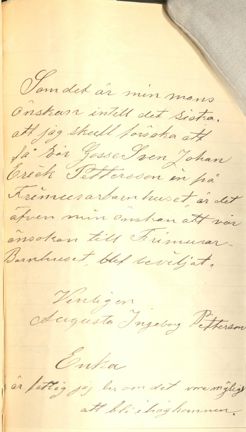 Som det är min mans
önskan intill det sista.
att jag skull försöka att
få vår Gosse Sven Johan
Erick Pettersson in på
Frimurarbarnhuset, är det
äfven min önskan att vår
ansökan till Frimurar-
Barnhuset blef beviljat.
Venligen
Augusta Ingeborg Petterson
Enka
är fattig jag ber om det vore möjligt
att bli ihogkommen.